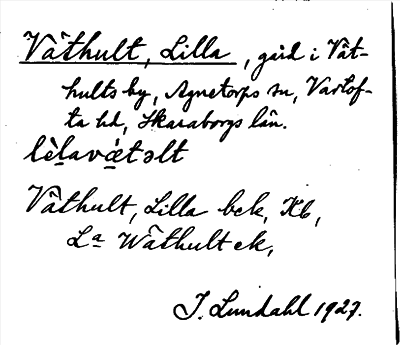 Våthult, Lilla, gård i Våt-
hults by, Agnetorps sn, Vartof-
ta hd, Skaraborgs län.
lèḷavǽtəlt
Våthult, Lilla bek, Kb,
La Wåthult ek,
J. Lundahl 1927.